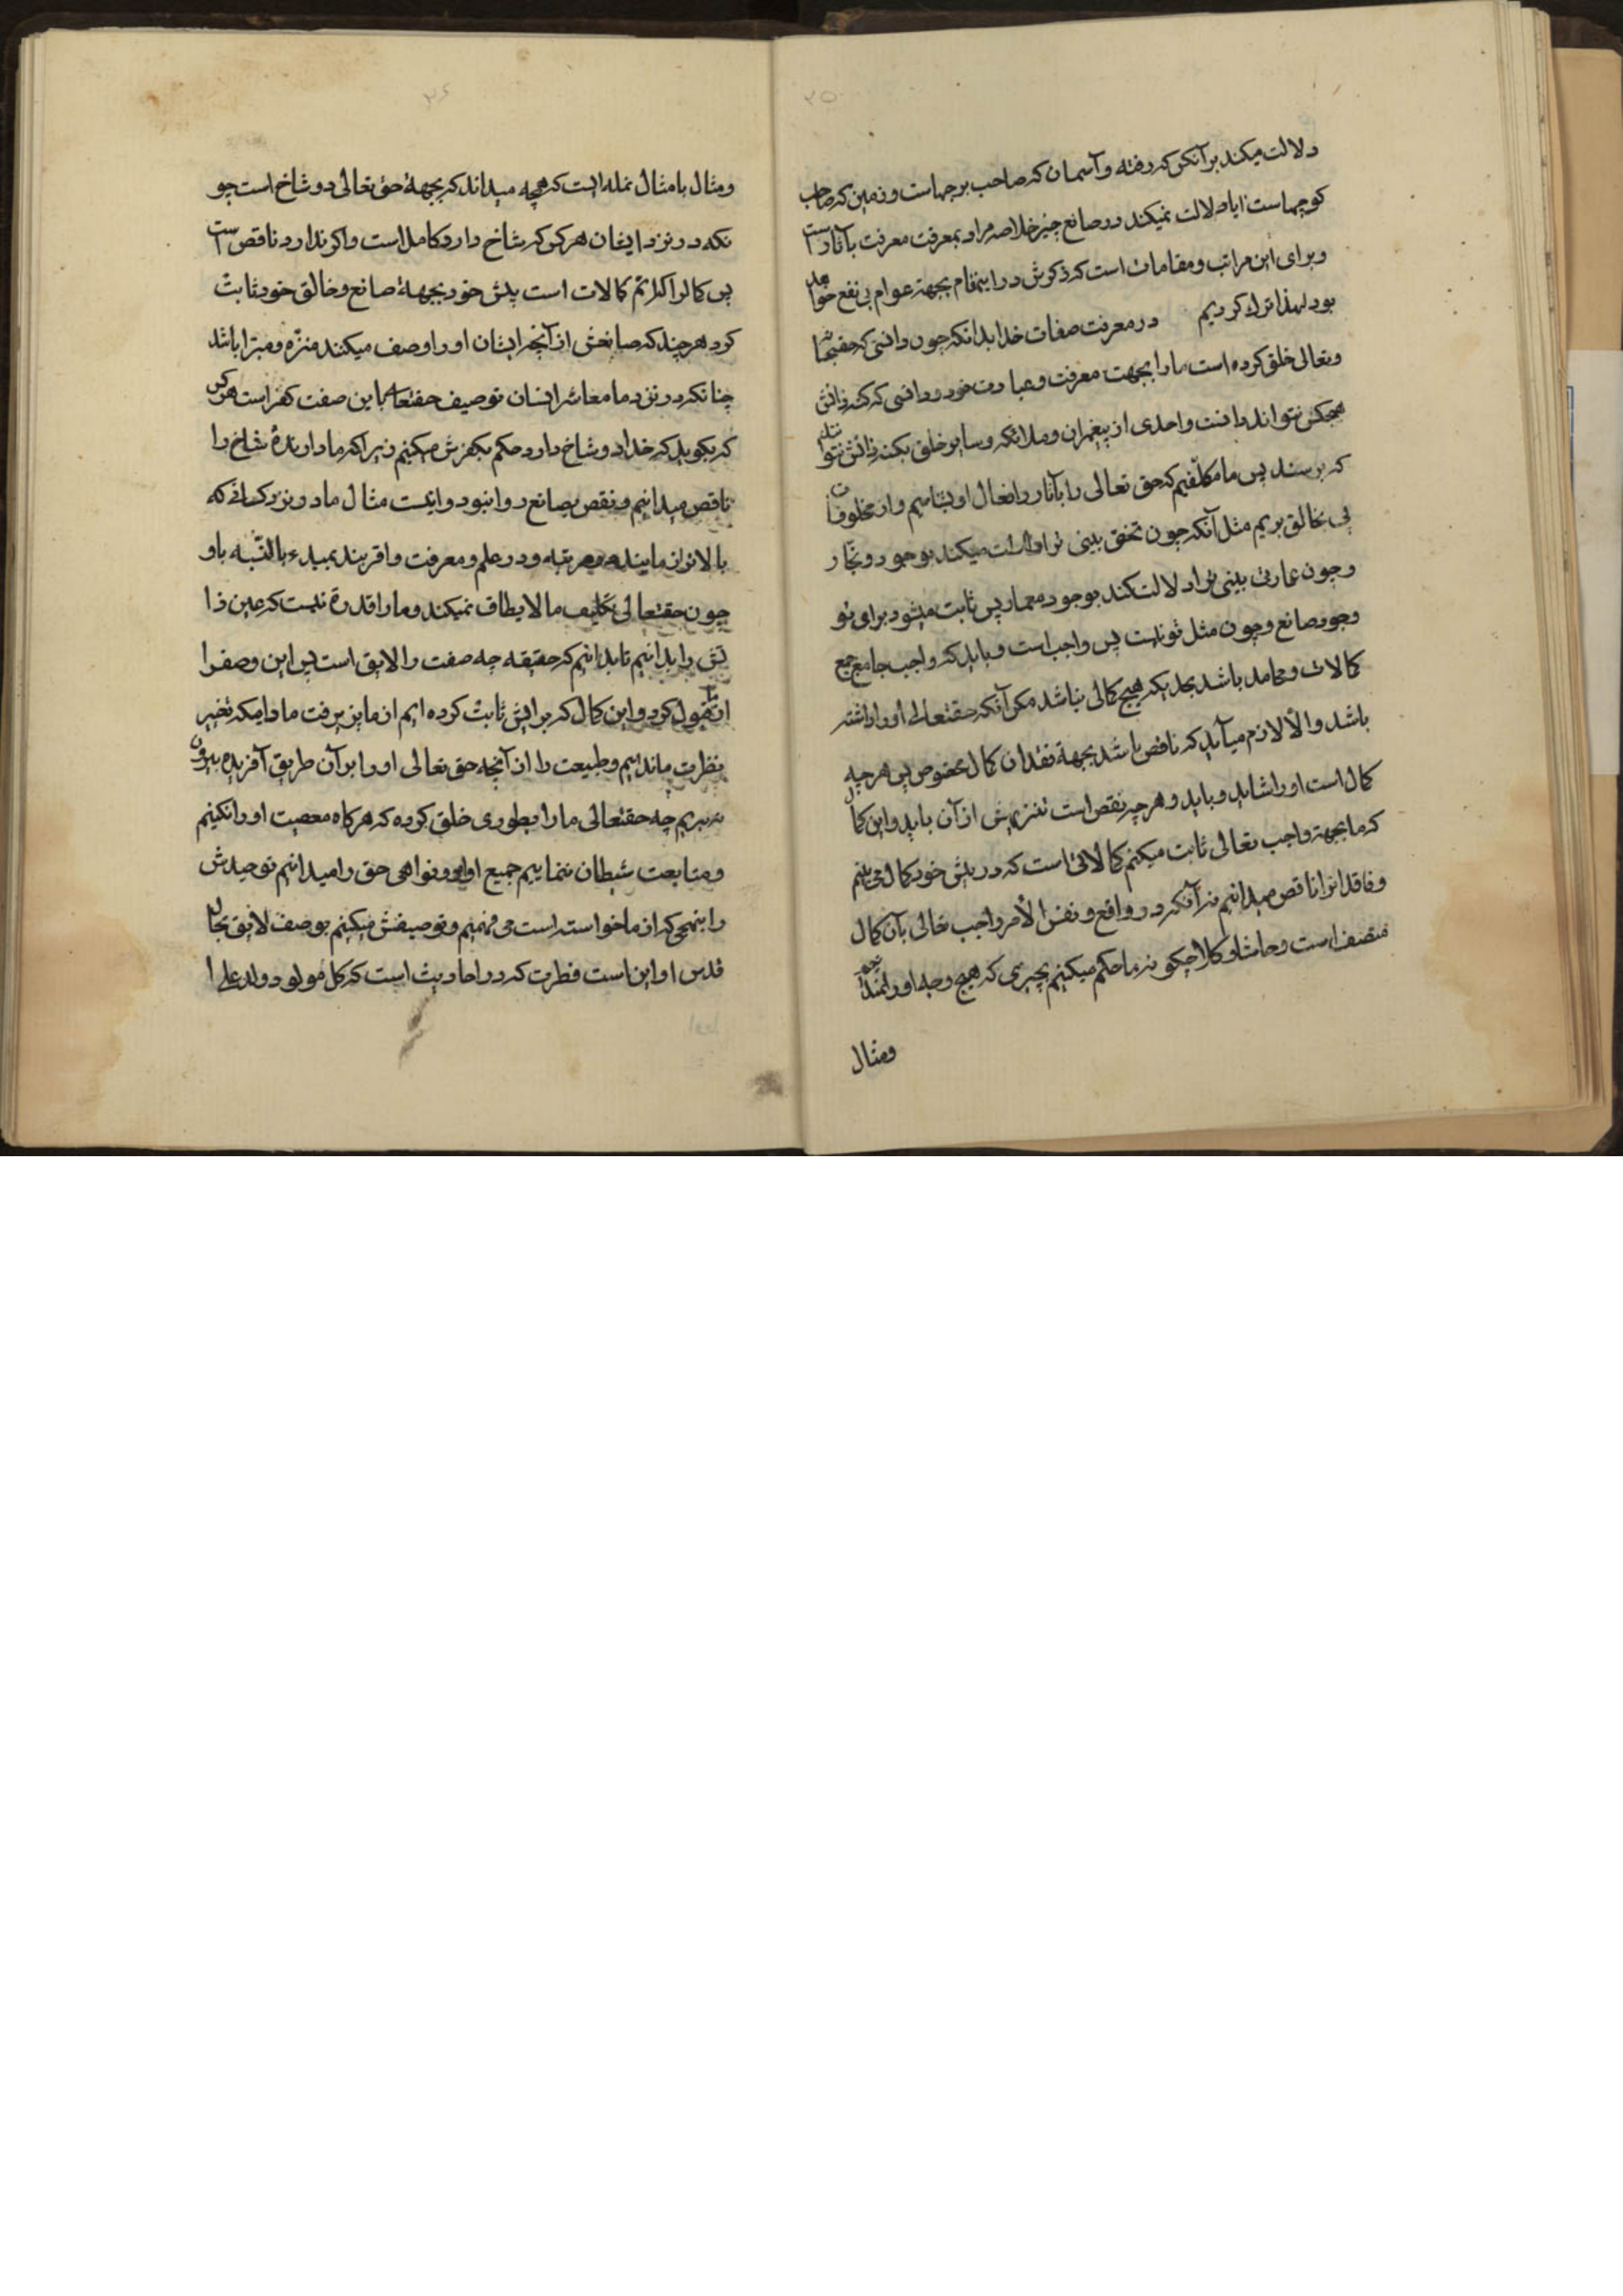 ۲۵
دلالت میکند بر آنکس که رفته و آسمان که صاحب برجهاست و زمین که صاحب
کوچهاست ایا دلالت نمیکند در صانع خلاصه مراد بمعرفت معرفت بآثار است
و برای این مراتب و مقامات است که ذکرش در اینمقام بجهة عوام بی نفع خواهد
بود لهذا ترک کردیم در معرفت صفات خدا بدانکه چون دانستی که حقسبحانه
و تعالی خلق کرده است ما را بجهت معرفت و عبادت خود و دانستی که کنه ذاتش
هیچکس نتواند دانست و احدی از پیغمبران و ملائکه و سایر خلق بکنه ذاتش نتوانند
که برسند پس ما مکلفیم که حق تعالی را بآثار و افعال او بشناسیم و از مخلوقات
پی بخالق بریم مثل آنکه چون تختی بینی ترا دلالت میکند بوجود نجار
و چون عمارتی بینی ترا دلالت کند بوجود معمار پس ثابت میشود برای تو
وجود صانع و چون مثل تو نیست پس واجب است و باید که واجب جامع جمیع
کمالات و محامد باشد بحدیکه هیچ کمالی نباشد مکر آنکه حقتعالی او را داشته
باشد و الا لازم میآید که ناقص باشد بجهة فقدان کمال مخصوص پس هر چه
کمال است او را شاید و باید و هر چه نقص است تنزیهش از آن باید و این کمال
که ما بجهة واجب تعالی ثابت میکنیم کمالاتی است که در پیش خود کمال می بینیم
و فاقد انرا ناقص میدانیم نه آنکه در واقع و نفس الأمر واجب تعالی بآن کمال
متصف است و حاشا و کلا چکونه ما حکم میکنیم بچیزی که هیچ وجه او را
ومثال
۲۶
ومثال ما مثال نمله ایست که میداند که بجهة حق تعالی دو شاخ است چو
نکه در نزد ایشان هر کس که شاخ دارد کامل است و اکر ندارد ناقص است
پس کمالرا که اتم کمالات است پیش خود بجهة صانع و خالق خود ثابت
کرد هر چند که صانعش از آنچه ایشان او را وصف میکنند منزه و مبرا باشد
چنانکه در نزد ما معاشر انسان توصیف حقتعالی باین صفت کفر است هر کس
که بکوید که خدا دو شاخ دارد حکم بکفرش میکنیم زیرا که ما دارنده شاخ را
ناقص میدانیم و نقص بصانع روا نبود و اینست مثال ما در نزد کسانی که
بالاتر از مایند در مرتبه و در علم و معرفت و اقربند بمبدء بالنسبه باو
چون حقتعالی تکلیف ما لا یطاق نمیکند و ما را قدرة نیست که عین ذا
تش را بدانیم تا بدانیم که حقیقه چه صفت را لایق است پس این وصف را
از ما قبول کرد و این کمال که برایش ثابت کرده ایم از ما پذیرفت مادامیکه تغییر
بفطرت ما ندادیم و طبیعت را از آنچه حق تعالی او را بر آن طریق آفریده بیرون
نبریم چه حقتعالی ما را بطوری خلق کرده که هر کاه معصیت او را نکنیم
و متابعت شیطان ننماییم جمیع اوامر و نواهی حق را میدانیم توحیدش
را بنهجی که از ما خواسته است می فهمیم و توصیفش میکنیم بوصف لایق بجناب
قدس او این است فطرت که در احادیث است که کل مولود یولد علی ا